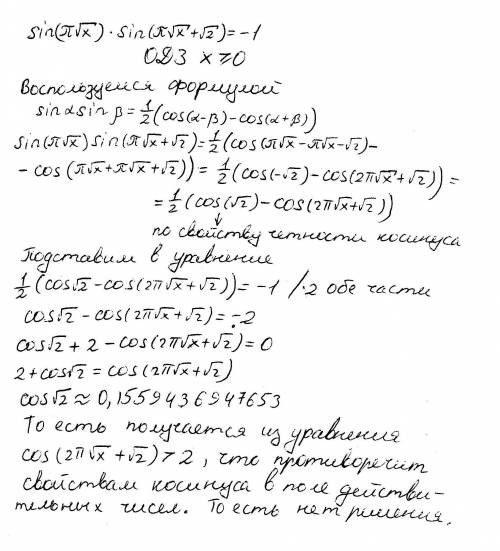 sin(π√x)·sin(π√x+√2)=-1
ОДЗ x≥0
Воспользуемся формулой
sinα sinβ=½(cos(α-β)-cos(α+β))
sin(π√x)sin(π√x+√2)=½(cos(π√x-π√x-√2)-
-cos(π√x+π√x+√2))=½(cos(-√2)-cos(2π√x+√2))=
=½(cos(√2)-cos(2π√x+√2))
↓
по свойству четности косинуса
Подставим в уравнение
½(cos√2-cos(2π√x+√2))=-1 /·2 обе части
cos√2-cos(2π√x+√2)=-2
cos√2+2-cos(2π√x+√2)=0
2+cos√2=cos(2π√x+√2)
cos√2≈0,1559436947653
То есть получается из уравнения
cos(2π√x+√2)>2, что противоречит
свойствам косинуса в поле действи-
тельных чисел. То есть нет решения.